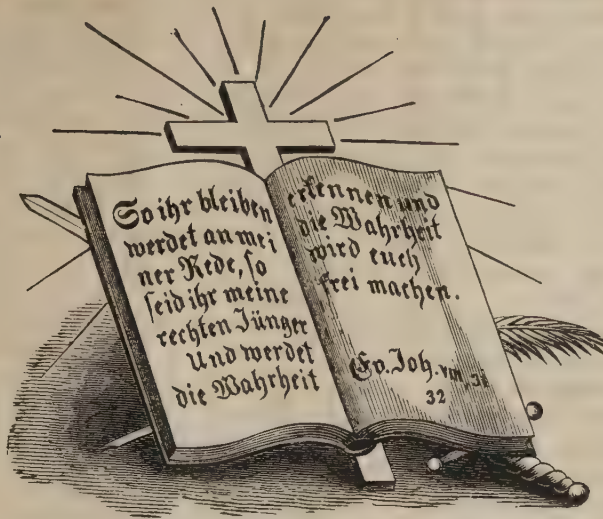 So ihr bleiben
werdet an mei
ner Rede, so
seid ihr meine
rechten Jünger
Und werdet
die Wahrheit
erkennen und
die Wahrheit
wird euch
frei machen.
Ev. Joh. VIII, 31
32